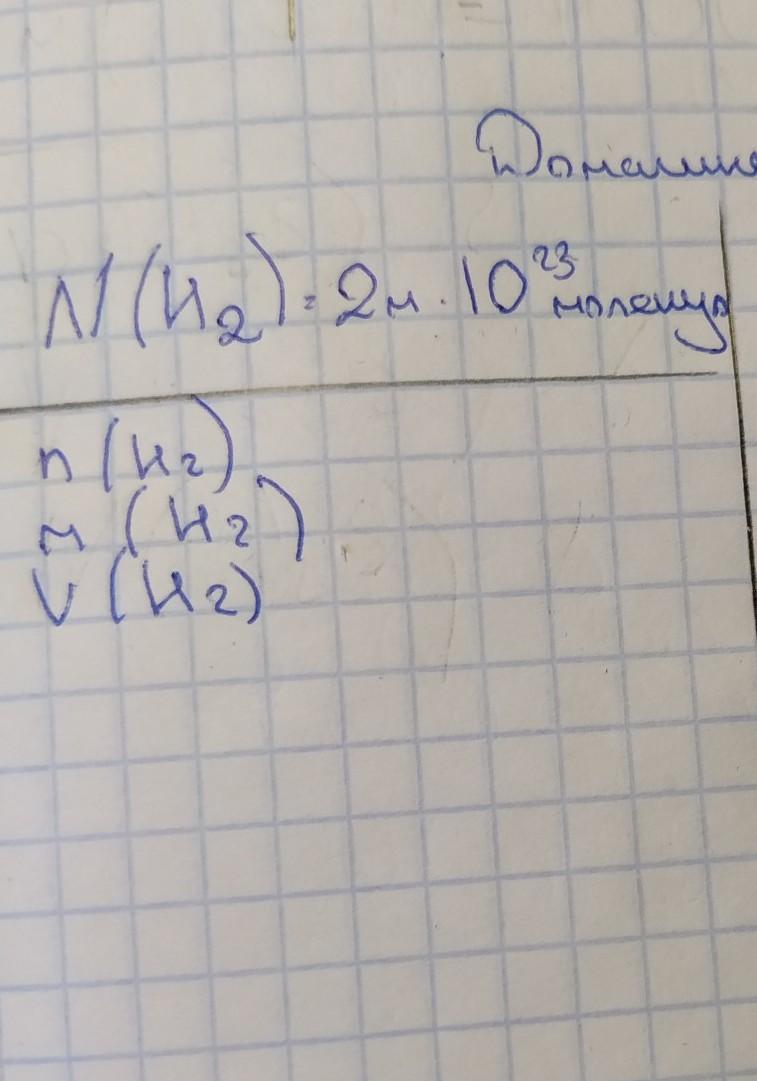 Домашн
N(H₂) = 24 · 10²³ молекул
n (H₂)
m (H₂)
V (H₂)